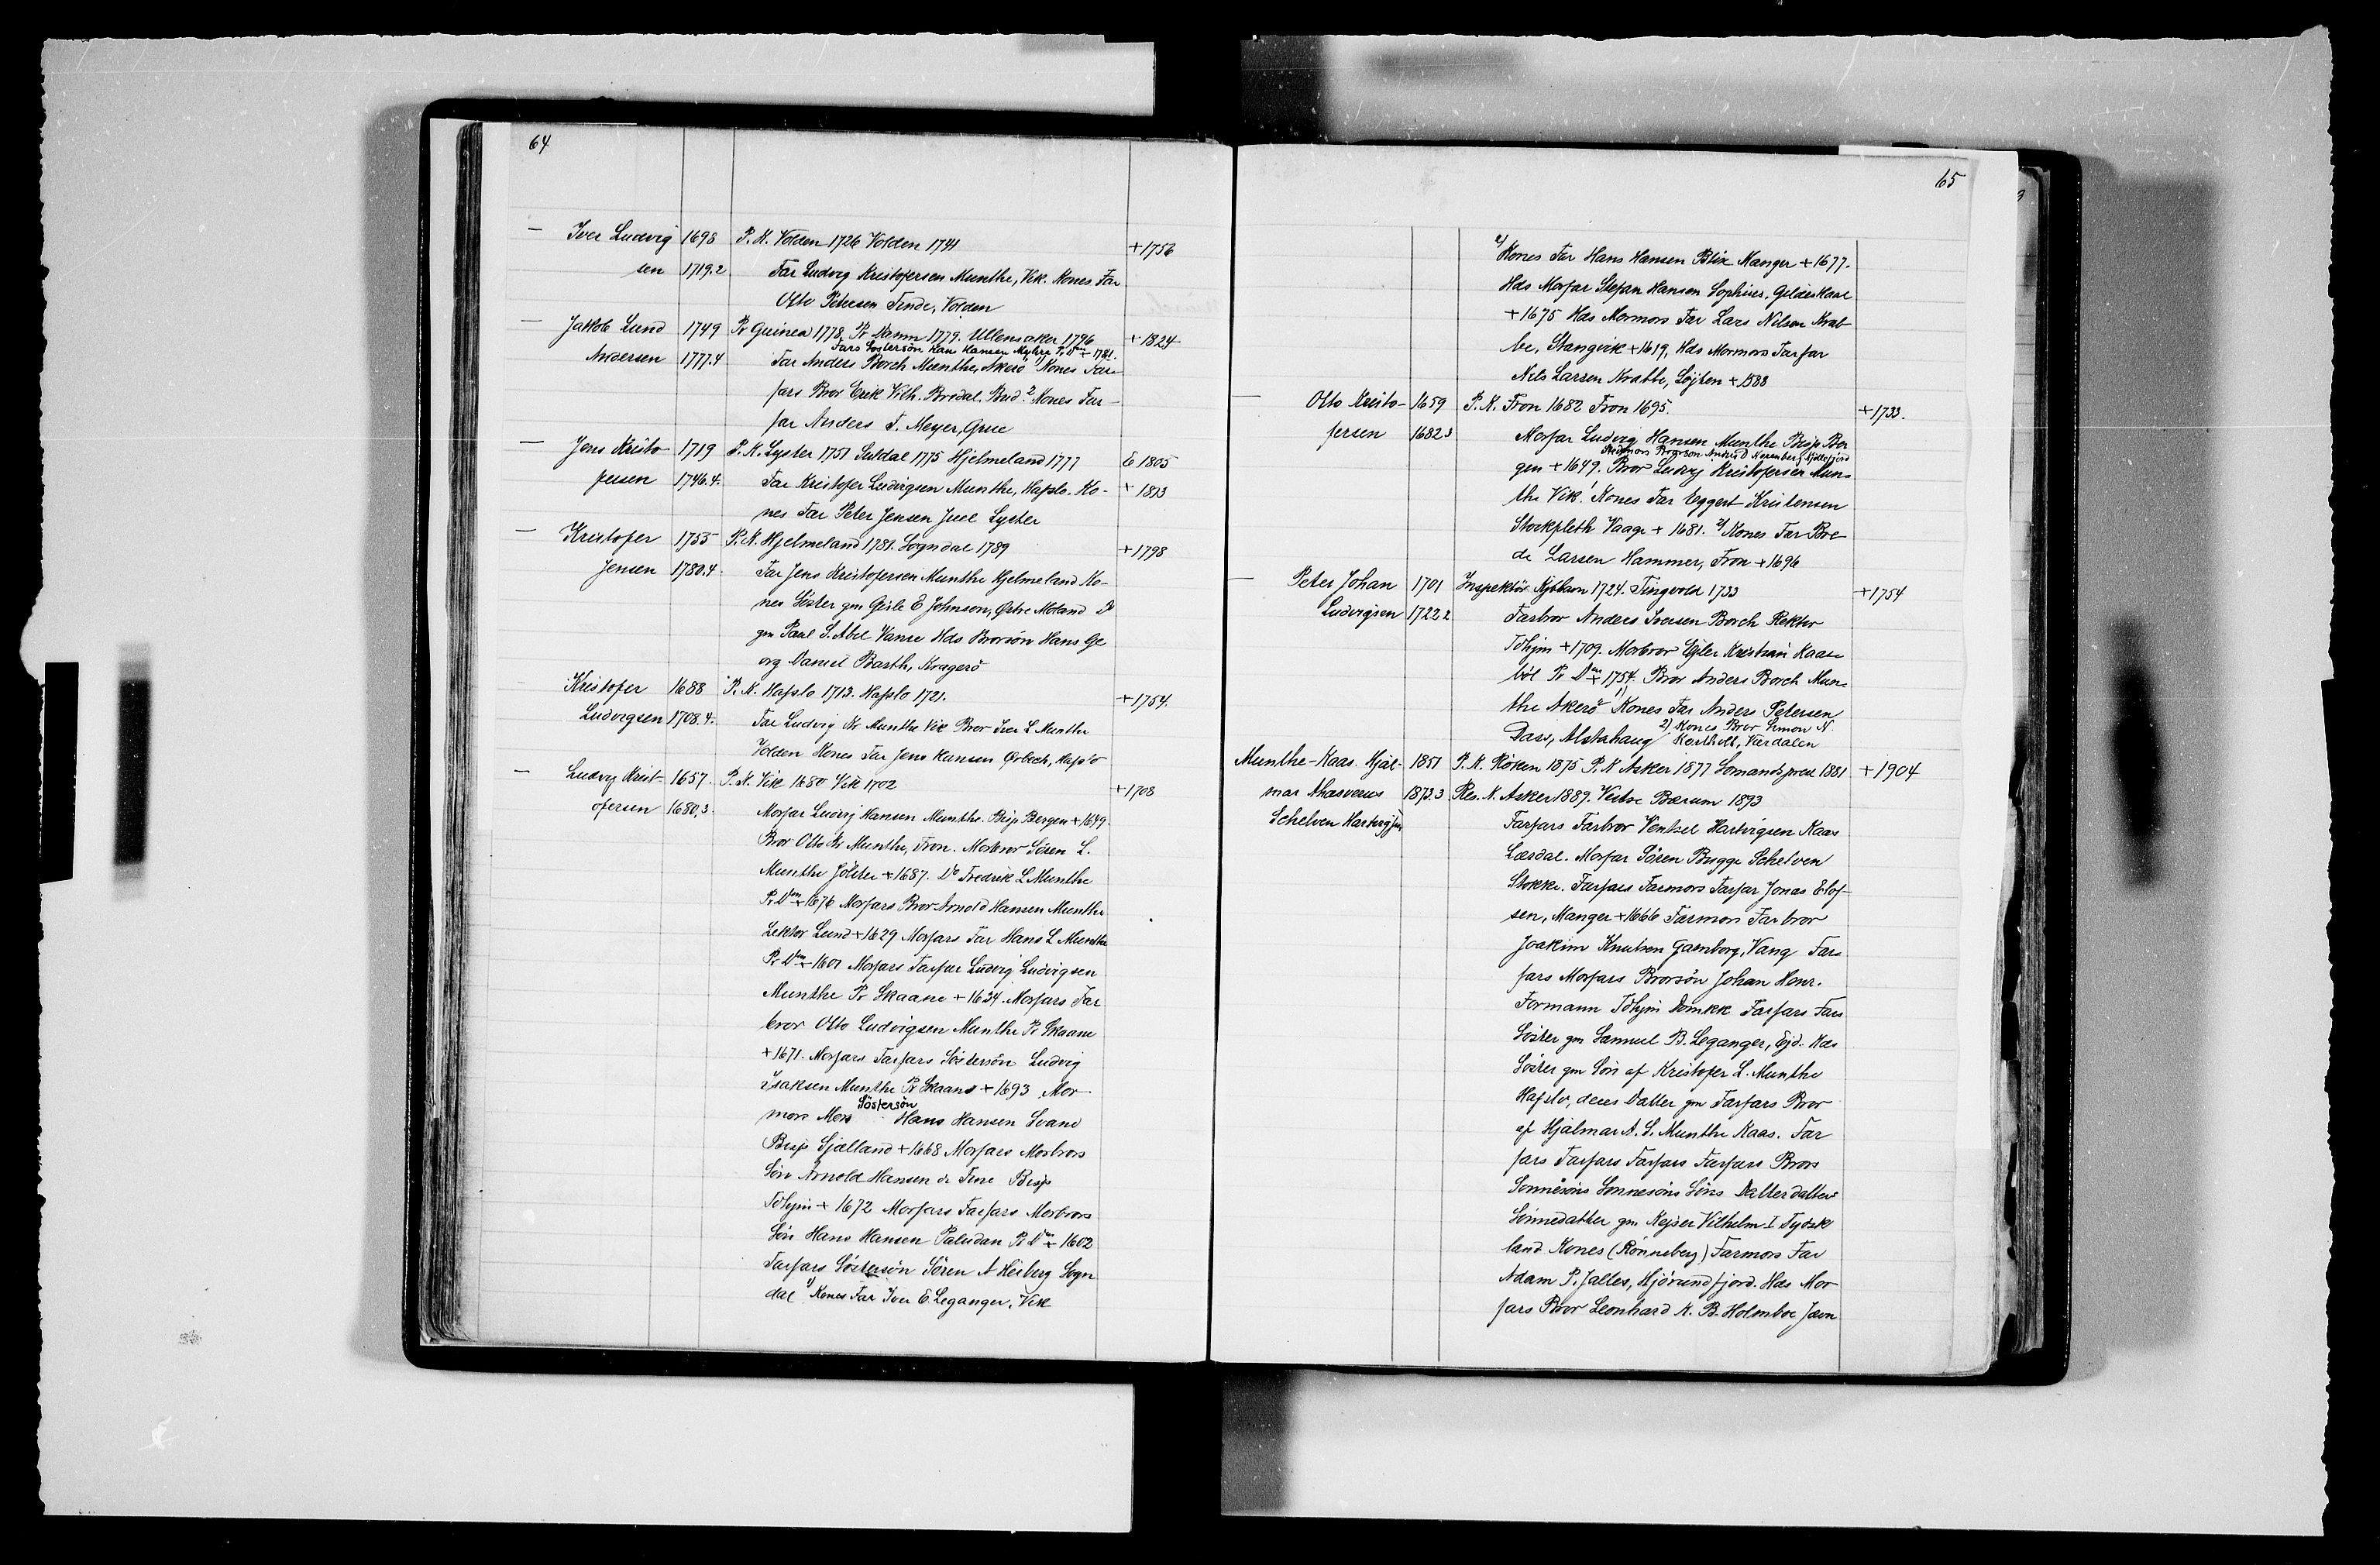 64
— Iver Ludvig 1698 P. K. Volden 1726 Volden 1741 +1756
sen 1719.2 Far Ludvig Kristofersen Munthe, Vik. Kones Far
Otto Petersen Finde, Volden
— Jakob Lund 1749 Pr Guinea 1778, Pr Damm 1779. Ullensaker 1796 +1824
Fars Søstersön Hans Hansen Myhre Pr Dm + 1781.
Andersen 1777.4 Far Anders Borch Munthe, Akerö 1) Kones Far-
fars Bror Erik Vilh. Bredal. Bud. 2 Kones Far-
far Anders T. Meyer, Grue
— Jens Kristo- 1719 P. K. Lyster 1751 Suldal 1775 Hjelmeland 1777 E 1805
fersen 1746.4. Far Kristofer Ludvigsen Munthe, Hafslo. Ko- + 1813
nes Far Peter Jensen Juel Lyster
— Kristofer 1755 P. K. Hjelmeland 1781. Sogndal 1789 +1798
Jensen 1780.4. Far Jens Kristofersen Munthe Hjelmeland Ko-
nes Söster gm Gisle E Johnson, Østre Moland Do
gm Paul S. Abel Vanse Hds Brorsön Hans Ge
org Daniel Barth, Kragerö
Kristofer 1688 P. K. Hafslo 1713. Hafslo 1721. +1754.
Ludvigsen 1708.4. Far Ludvig Kr Munthe Vik Bror Iver L Munthe
Volden Kones Far Jens Hansen Ørbech, Hafslo
— Ludvig Krist- 1657. P. K. Vik 1680 Vik 1702 +1708
ofersen 1680.3. Morfar Ludvig Hansen Munthe. Bisp Bergen +1649.
Bror Otto Kr Munthe, Fron. Morbror Sören L.
Munthe Jölster +1687. Do Fredrik L Munthe
Pr Dm +1676 Morfars Bror Arnold Hansen Munthe
Lektor Lund +1629 Morfars Far Hans L Munthe
Pr Dm +1601 Morfars Farfar Ludvig Ludvigsen
Munthe Pr Skaane +1634. Morfars Far
bror Otto Ludvigsen Munthe Pr Skaane
+1671. Morfars Farfars Söstersön Ludvig
Isaksen Munthe Pr Skaane +1693 Mor-
mors Mors Söstersön Hans Hansen Svane
Bisp Sjælland +1668 Morfars Morbrors
Sön Arnold Hansen de Fine Bisp
Tdhjm + 1672 Morfars Farfars Morbrors
Sön Hans Hansen Paludan Pr Dm + 1602
Farfars Söstersön Sören A Heiberg Sogn
dal 1) Kones Far Iver E. Leganger, Vik
65
2) Kones Far Hans Hansen Blix Manger +1677.
Hds Morfar Stefan Hansen Sophius, Gildeskaal
+1675 Hds Mormors Far Lars Nilsen Krab-
be, Stangvik +1619, Hds Mormors Farfar
Nils Larsen Krabbe, Löjten +1588
— Otto Kristo- 1659 P. K. Fron 1682 Fron 1695. +1733.
fersen 1682.3 Morfar Ludvig Hansen Munthe Bisp Ber
Brorson Anders D
gen +1649. Bror Ludvig Kristofersen Mun-
the Vik. 1) Kones Far Eggert Kristensen
Stockfleth Vaage + 1681. 2) Kones Far Bre-
de Larsen Hammer, Fron +1696
— Peter Johan 1701 Inspektör 1724. Tingvold 1733 +1754
Ludvigsen 1722.2 Farbror Anders Iversen Borch Rektor
Tdhjm +1709. Morbror Ejler Kristian Kaase-
böl Pr Dm +1754. Bror Anders Borch Mun-
the Akerö 1) Kones Far Anders Petersen
Dass, Alstahaug 2) Kones Bror Simon N.
Kortholt, Værdalen
Munthe-Kaas Hjal- 1851 P. K. Röken 1875 P. K Asker 1877 Sömandsprest 1881 +1904
mar Ahasverus 1873.3 Res. K. Asker 1889. Vestre Bærum 1893
Schelven Hartvigsen Farfars Farbror Ventzel Hartvigsen Kaas
Læsdal. Morfar Sören Bugge Schelven
Stokke. Farfars Farmors Farfar Jonas Elof-
sen, Manger +1666 Farmors Farbror
Joakim Knutsen Gamborg, Vang Far-
fars Morfars Brorsön Johan Henr.
Formann Tdhjm Domkk Farfars Fars
Söster gm Samuel B. Leganger, Ejd. Hds
Söster gm Sön af Kristofer L. Munthe
Hafslo, deres Datter gm Farfars Bror
af Hjalmar A. S. Munthe Kaas. Far
fars Farfars Farfars Farfars Brors
Sonnesöns Sonnesöns Söns Datterdatters
Sönnedatter gm Kejser Vilhelm I Tydsk
land Kones (Rönneberg) Farmors Far
Adam P. Jalles, Hjörundfjord. Hds Mor-
fars Bror Leonhard K. B. Holmboe Jævn